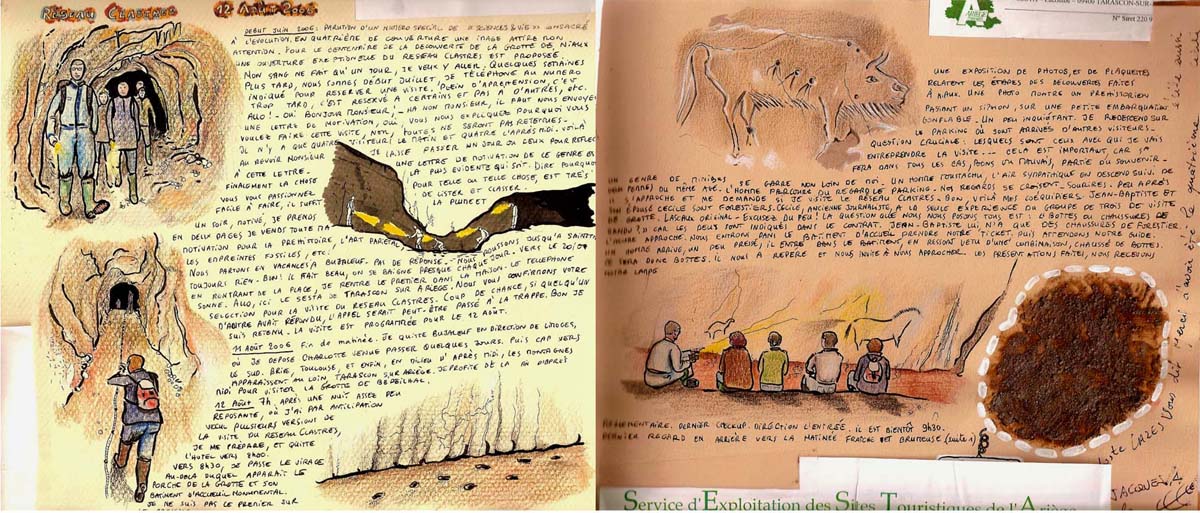 RÉSEAU CLASTRES 12 AOÛT 2006
DÉBUT JUIN 2006: PARUTION D'UN NUMERO SPECIAL DE "SCIENCES & VIE" CONSACRÉ
À L'EVOLUTION. EN QUATRIÈME DE COUVERTURE UNE IMAGE ATTIRE MON
ATTENTION. POUR LE CENTENAIRE DE LA DÉCOUVERTE DE LA GROTTE DE NIAUX
UNE OUVERTURE EXCEPTIONELLE DU RESEAU CLASTRES EST PROPOSÉE.
MON SANG NE FAIT QU'UN TOUR, JE VEUX Y ALLER. QUELQUES SEMAINES
PLUS TARD, NOUS SOMMES DÉBUT JUILLET, JE TÉLÉPHONE AU NUMERO
INDIQUÉ POUR RESERVER UNE VISITE. PLEIN D'APREHENSION, C'EST
TROP TARD, C'EST RESERVÉ À CERTAINS ET PAS À D'AUTRES, ETC.
ALLO! - OUI BONJOUR MONSIEUR, - HA NON MONSIEUR, IL FAUT NOUS ENVOYER
UNE LETTRE DE MOTIVATION, OÙ VOUS NOUS EXPLIQUEZ POURQUOI VOUS
VOULEZ FAIRE CETTE VISITE, NON, TOUTES NE SERONT PAS RETENUES.
IL N'Y A QUE QUATRE VISITEUR LE MATIN ET QUATRE L'APRÈS MIDI. VOILÀ
AU REVOIR MONSIEUR JE LAISSE PASSER UN JOUR OU DEUX POUR REFLEC
À CETTE LETTRE. UNE LETTRE DE MOTIVATION DE CE GENRE EST
FINALEMENT LA CHOSE LA PLUS EVIDENTE QUI SOIT. DIRE POURQUOI
VOUS VOUS PASSIONNEZ POUR TELLE OU TELLE CHOSE, EST TRÈS
FACILE À FAIRE, IL SUFFIT DE LISTER ET CLASSER.
UN SOIR, MOTIVÉ, JE PRENDS LA PLUME ET
EN DEUX PAGES JE VENDS TOUTE MA
MOTIVATION POUR LA PREHISTOIRE, L'ART PARIETAL,
LES EMPREINTES FOSSILES, ETC! POUSSONS JUSQU'À
NOUS PARTONS EN VACANCES À BUJALEUF. PAS DE RÉPONSE. VERS LE 20/07
TOUJOURS RIEN. BON! IL FAIT BEAU, ON SE BAIGNE PRESQUE CHAQUE JOUR.
EN RENTRANT DE LA PLAGE, JE RENTRE LE PREMIER DANS LA MAISON. LE TELEPHONE
SONNE. ALLO, ICI LE SESTA DE TARASCON SUR ARIÈGE. NOUS VOUS CONFIRMONS VOTRE
SELECTION POUR LA VISITE DU RESEAU CLASTRES. COUP DE CHANCE, SI QUELQU'UN
D'AUTRE AVAIT RÉPONDU, L'APPEL SERAIT PEUT-ÊTRE PASSÉ À LA TRAPPE. BON JE
SUIS RETENU. LA VISITE EST PROGRAMMÉE POUR LE 12 AOÛT.
11 AOÛT 2006 FIN DE MATINÉE. JE QUITTE BUJALEUF EN DIRECTION DE LIMOGES,
OÙ JE DEPOSE CHARLOTTE VENUE PASSER QUELQUES JOURS. PUIS CAP VERS
LE SUD. BRIVE, TOULOUSE, ET ENFIN, EN MILIEU D'APRÈS MIDI, LES MONTAGNES
APPARAISSENT AU LOIN TARASCON SUR ARIÈGE. JE PROFITE DE LA FIN D'APRÈS
MIDI POUR VISITER LA GROTTE DE BEDEILHAC.
12 AOÛT 7H, APRÈS UNE NUIT ASSEZ PEU
REPOSANTE, OÙ J'AI PAR ANTICIPATION
VECU PLUSIEURS VERSIONS DE
LA VISITE DU RÉSEAU CLASTRES,
JE ME PRÉPARE, ET QUITTE
L'HOTEL VERS 8H00.
VERS 8H30, JE PASSE LE VIRAGE
AU-DELÀ DUQUEL APPARAIT LE
PORCHE DE LA GROTTE ET SON
BATIMENT D'ACCUEIL MONUMENTAL.
JE NE SUIS PAS LE PREMIER SUR
09400 TARASCON-SUR-
N° Siret 220 9
UNE EXPOSITION DE PHOTOS, ET DE PLAQUETTES
RELATENT LES ÉTAPES DES DÉCOUVERTES FAITES
À NIAUX. UNE PHOTO MONTRE UN PREHISTORIEN
PASSANT UN SIPHON, SUR UNE PETITE EMBARQUATION
GONFLABLE. UN PEU INQUIÉTANT. JE REDESCEND SUR
LE PARKING OÙ SONT ARRIVÉS D'AUTRES VISITEURS.
QUESTION CRUCIALE: LESQUELS SONT CEUX AVEC QUI JE VAIS
ENTREPRENDRE LA VISITE... CELA EST IMPORTANT CAR ÇA
FERA DANS TOUS LES CAS, BONS OU MAUVAIS, PARTIE DU SOUVENIR.
UN GENRE DE MINIBUS SE GARRE NON LOIN DE MOI. UN HOMME MOUSTACHU, L'AIR SYMPATHIQUE EN DESCEND SUIVI DE
DU MÊME AGE. L'HOMME PARCOURE DU REGARD LE PARKING. NOS REGARDS SE CROISENT - SOURIRES. PEU APRÈS
S'APPROCHE ET ME DEMANDE SI JE VISITE LE RÉSEAU CLASTRES. BON, VOILÀ MES COÉQUIPIERS JEAN-BAPTISTE ET
CECILE, ANCIENNE JOURNALISTE, A LA SEULE EXPERIENCE DU GROUPE DE TROIS DE VISITE
GROTTE. LASCAUX ORIGINAL - EXCUSEZ DU PEU! LA QUESTION QUE NOUS NOUS POSONS TOUS EST: BOTTES OU CHAUSSURES DE
RANDO? CAR LES DEUX SONT INDIQUÉS DANS LE CONTRAT. JEAN-BAPTISTE LUI N'A QUE DES CHAUSSURES DE FORESTIER
L'HEURE APPROCHE. NOUS ENTRONS DANS LE BATIMENT D'ACCUEIL PRENDRE NOTRE TICKET, PUIS ATTENDONS NOTRE GUIDE.
UN HOMME ARRIVE, UN PEU PRESSÉ, IL ENTRE DANS LE BATIMENT, EN RESSORT VETU D'UNE COMBINAISON, CHAUSSÉ DE BOTTES.
CE SERA DONC BOTTES. IL NOUS A REPERÉ ET NOUS INVITE À NOUS APPROCHER. LES PRÉSENTATIONS FAITES, NOUS RECEVONS
NOTRE LAMPE
DERNIER CHECKUP. DIRECTION L'ENTRÉE. IL EST BIENTÔT 9H30.
DERNIER REGARD EN ARRIÈRE VERS LA MATINÉE FRAÎCHE ET BRUMEUSE (SUITE 1)
Merci
JACQUES
Service d'Exploitation des Sites Touristiques de l'Ariège